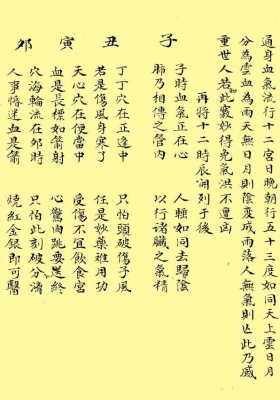 通身血氣流行十二宮日晚朝行五十三度如同天上雲日月
分為雲血為雨天無日月則陰變成雨落人無氣則亡此乃
重世人若此妙得免氣洪不遭凶
再將十二時辰開列于後
子
子時血氣正在心 人睡如同去歸陰
肺乃相傳之管內 以行諸臟之氣精
丑
丁丁穴在正途中 只怕頭破傷子風
若是傷風身寒了 任是妙藥难用功
寅
天心穴在便當中 受傷不宜飲食宮
血是長標如箭射 心驚肉跳要送終
卯
穴海輪流在卯時 只怕此刻破分漓
人事惛迷血是箭 燒紅金銀即可醫